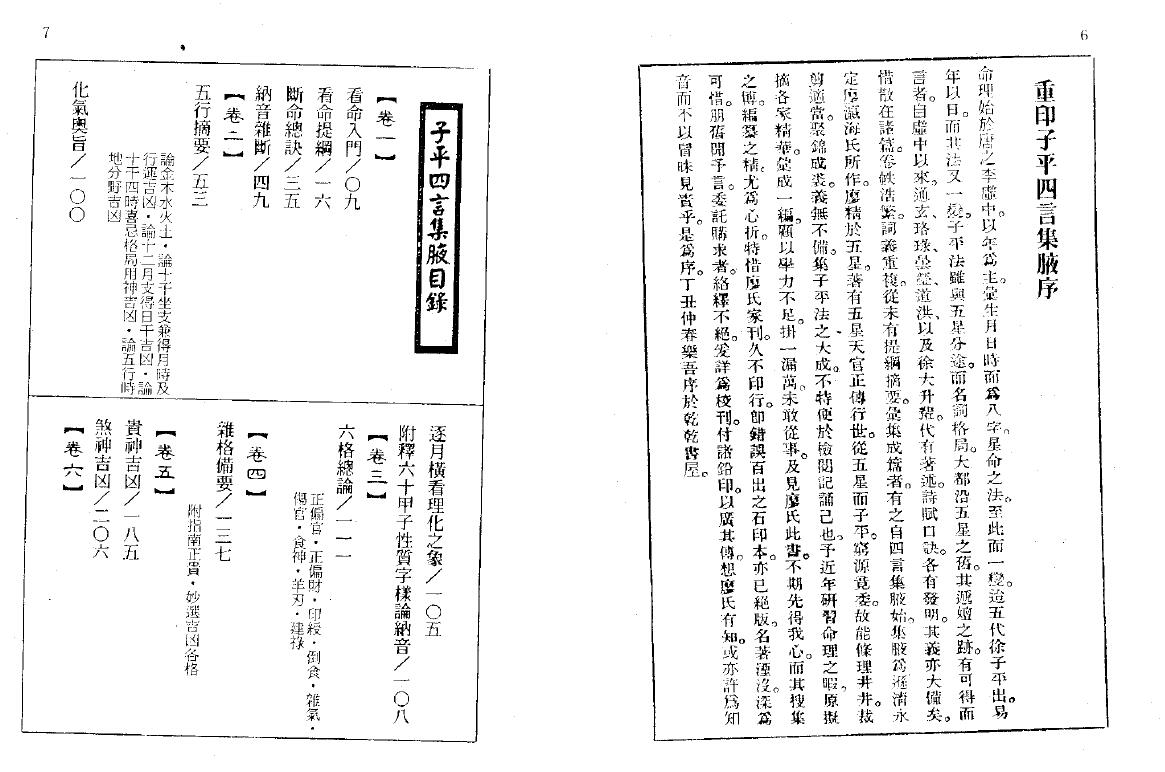 6
重印子平四言集腋序
命理始於唐之李虛中以年爲主彙生月日時而爲八字星命之法至此而一變。迨五代徐子平出。易
年以日。而其法又一變。子平法雖與五星分途而名詞格局。大都沿五星之舊。其遞嬗之跡。有可得而
言者。自虛中以來通玄、珞琭、曇瑩、道洪、以及徐大升輩。代有著述。詩賦口訣。各有發明。其義亦大備矣。
惜散在諸篇。卷帙浩繁。詞義重複。從未有提綱摘要。彙集成篇者。有之自四言集腋始。集腋爲遜清永
定廖瀛海氏所作。廖精於五星。著有五星天官正傳行世。從五星而子平。窮源竟委。故能條理井井。裁
剪適當。聚錦成裘。義無不備。集子平法之大成。不特便於檢閱記誦已也。予近年研習命理之暇。原擬
摘各家精華。彙成一編。顧以學力不足。掛一漏萬。未敢從事。及見廖氏此書。不期先得我心。而其搜集
之博。編纂之精。尤爲心折。特惜廖氏家刊。久不印行。即錯誤百出之石印本。亦已絕版。名著湮沒。深爲
可惜。朋舊聞予言。委託購求者。絡繹不絕。爰詳爲校刊。付諸鉛印。以廣其傳。想廖氏有知。或亦許爲知
音而不以冒昧見責乎。是爲序。丁丑仲春樂吾序於乾乾書屋。
7
子平四言集腋目錄
【卷一】
看命入門／〇九
看命提綱／一六
斷命總訣／三五
納音雜斷／四九
【卷二】
五行摘要／五三
論金木水火土・論十干坐支兼得月時及
行運吉凶・論十二月支得日干吉凶・論
十干四時喜忌格局用神吉凶・論五行時
地分野吉凶
化氣奧旨／一〇〇
逐月橫看理化之象／一〇五
附釋六十甲子性質字樣論納音／一〇八
【卷三】
六格總論／一一一
正偏官・正偏財・印綬・倒食・雜氣・
傷官・食神・羊刃・建祿
【卷四】
雜格備要／一三七
附指南正貴・妙選吉凶各格
【卷五】
貴神吉凶／一八五
煞神吉凶／二〇六
【卷六】